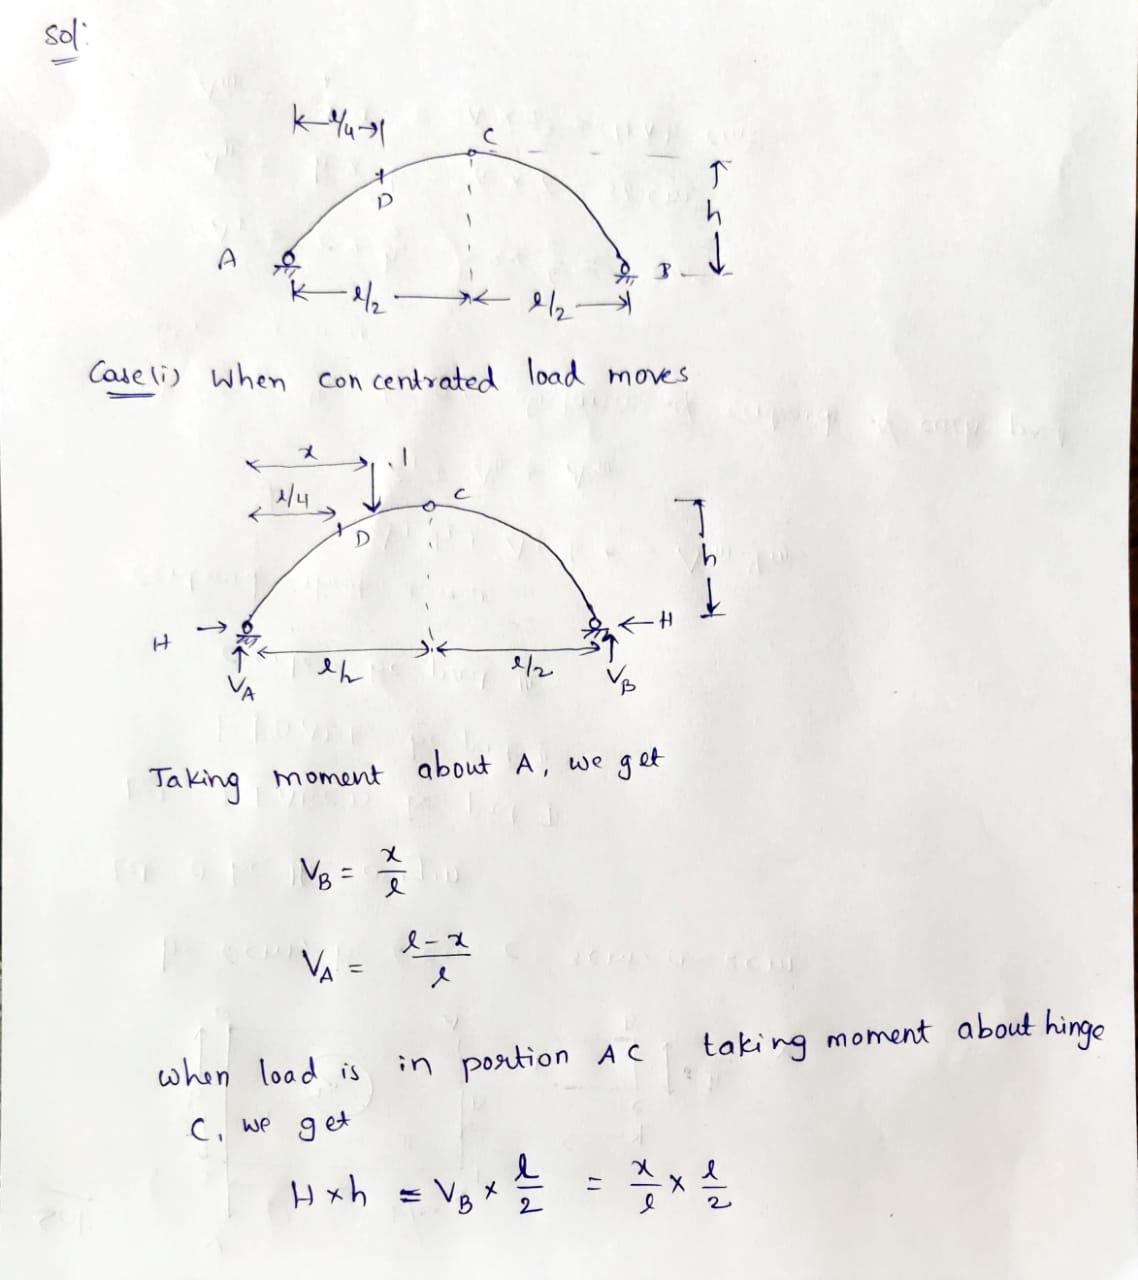 Sol:
l/4
C
D
h
A
B
l/2
l/2
Case (i) When concentrated load moves
x
1
l/4
C
D
h
H
H
l/2
l/2
VA
VB
Taking moment about A, we get
VB = x/l
VA = l-x/l
when load is in portion AC taking moment about hinge
C, we get
H×h = VB × l/2 = x/l × l/2